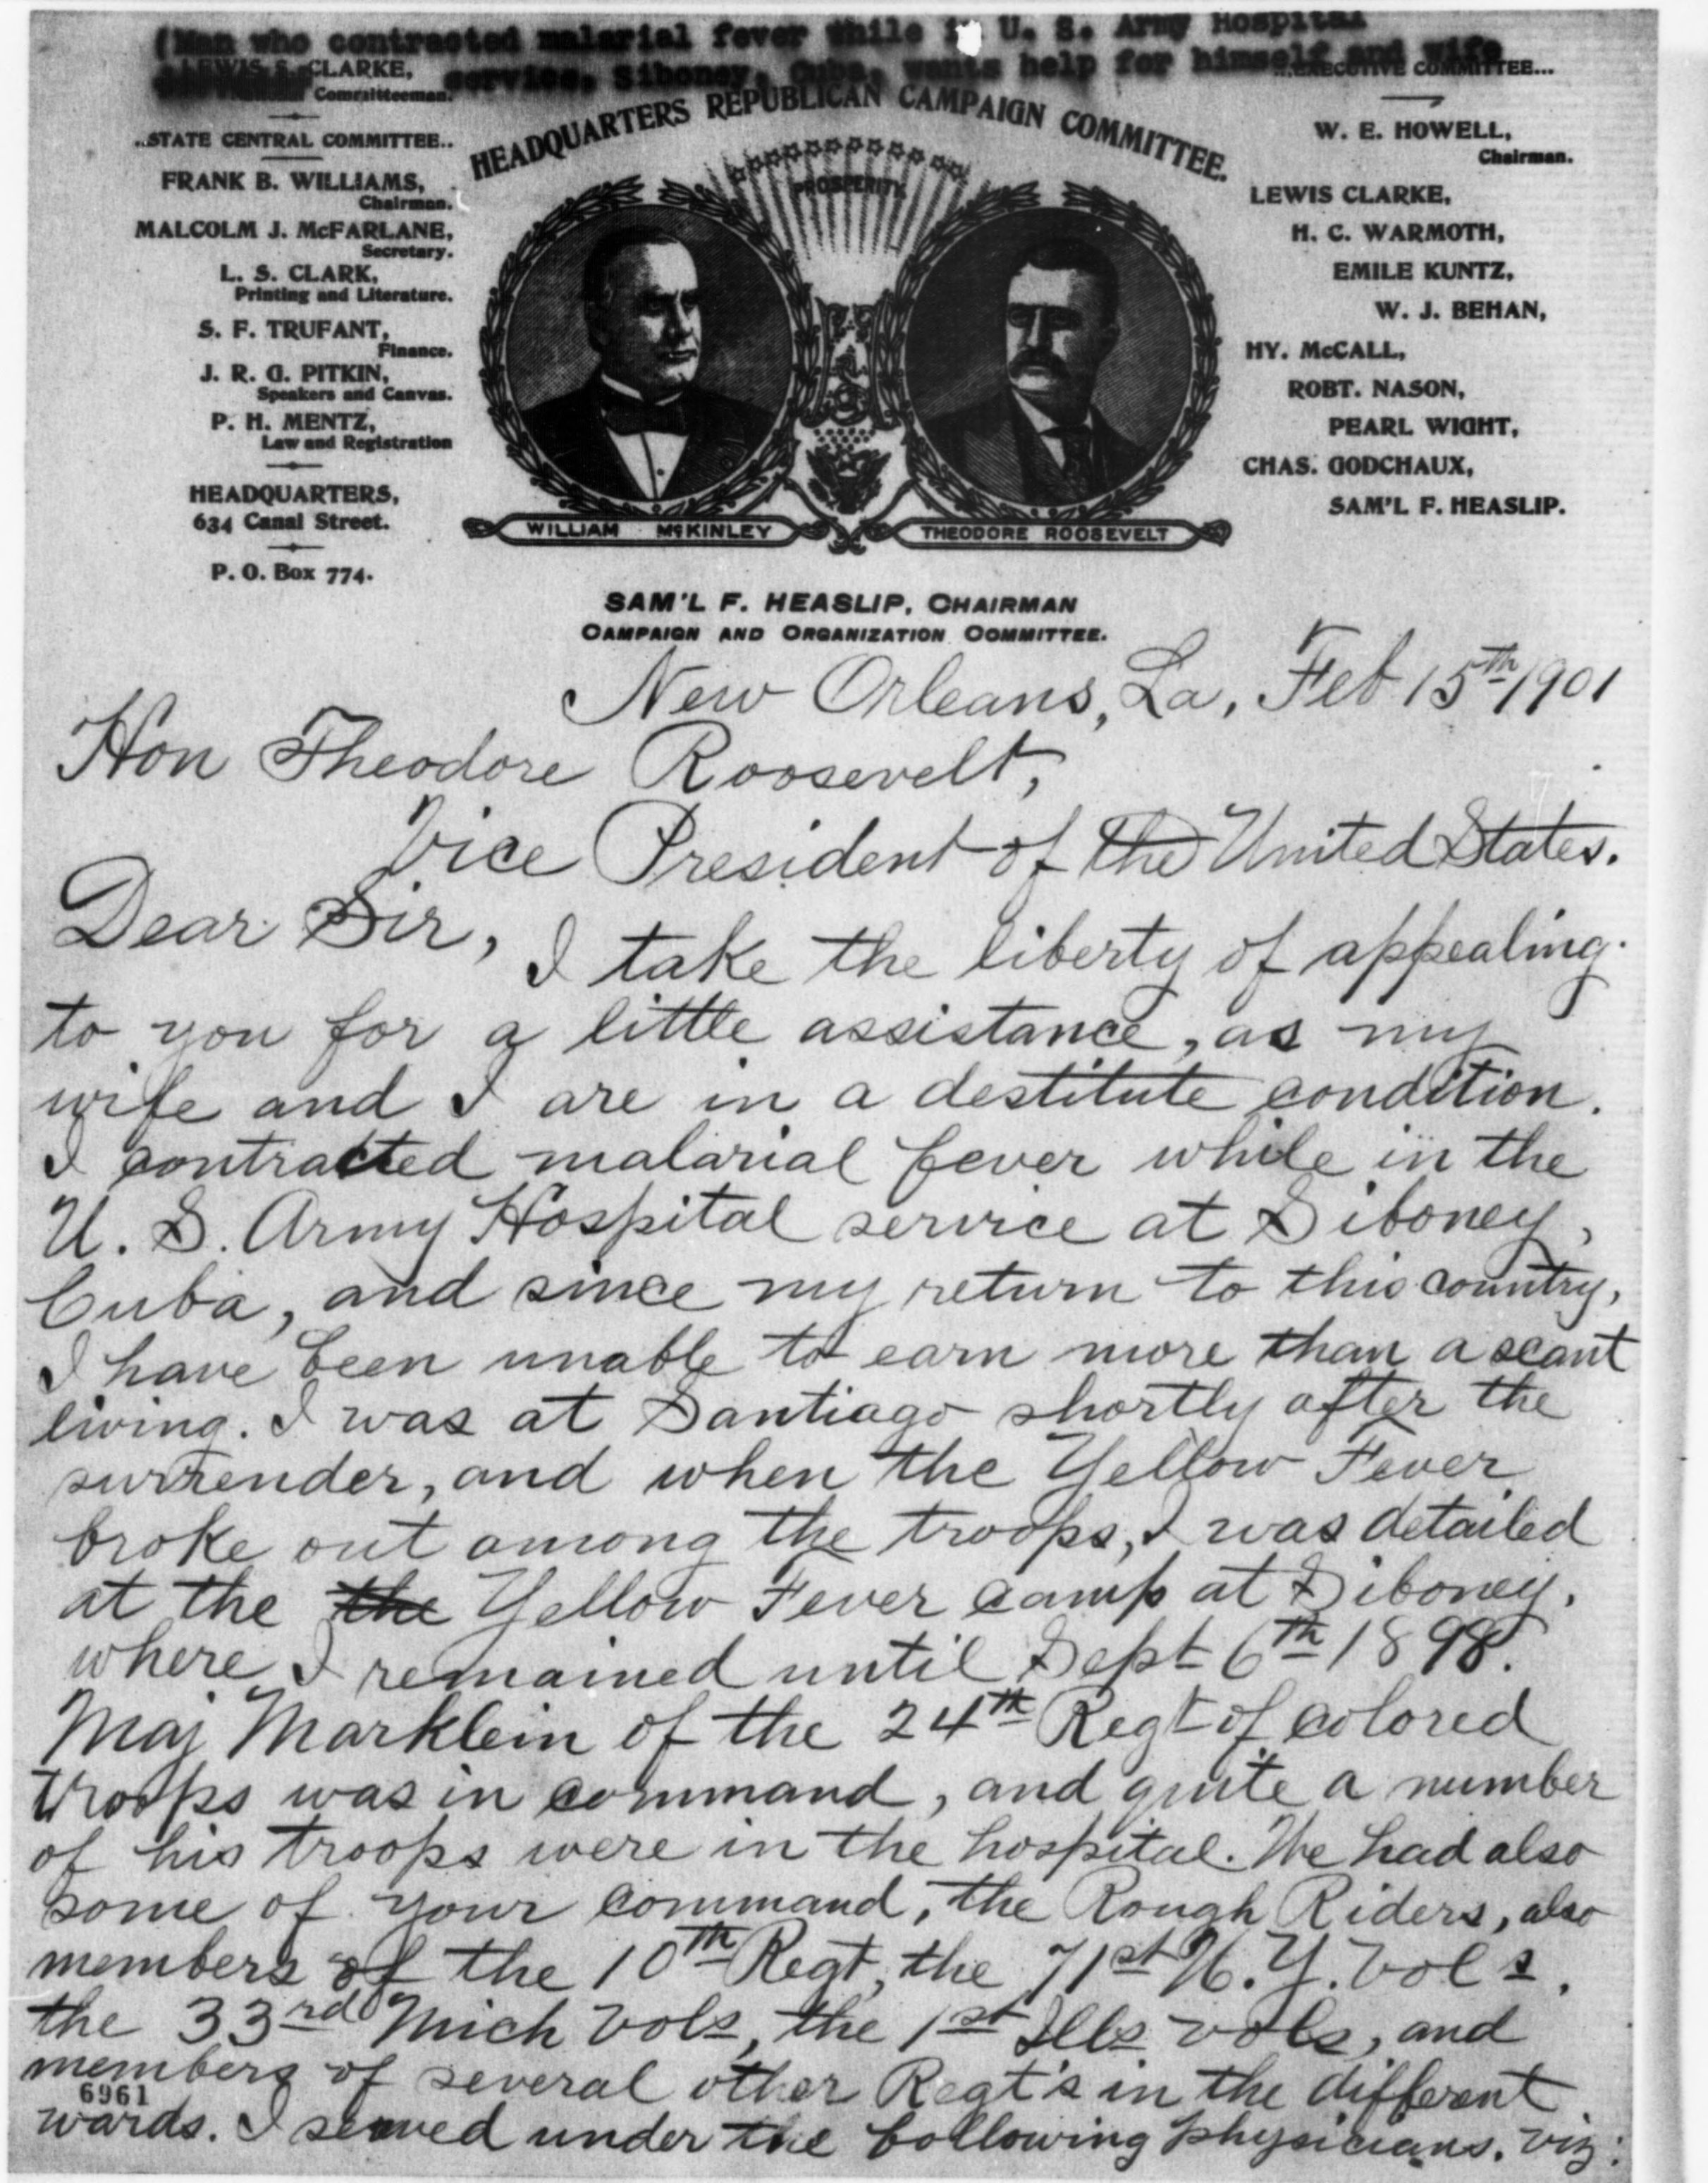 (Man who contracted malarial fever while in U. S. Army Hospital
service, Siboney, Cuba, wants help for himself and wife
LEWIS S. CLARKE,
Committeeman.
..STATE CENTRAL COMMITTEE..
FRANK B. WILLIAMS,
Chairman.
MALCOLM J. McFARLANE,
Secretary.
L. S. CLARK,
Printing and Literature.
S. F. TRUFANT,
Finance.
J. R. G. PITKIN,
Speakers and Canvas.
P. H. MENTZ,
Law and Registration
HEADQUARTERS,
634 Canal Street.
P. O. Box 774.
HEADQUARTERS REPUBLICAN CAMPAIGN COMMITTEE.
PROSPERITY
WILLIAM McKINLEY
THEODORE ROOSEVELT
...EXECUTIVE COMMITTEE...
W. E. HOWELL,
Chairman.
LEWIS CLARKE,
H. C. WARMOTH,
EMILE KUNTZ,
W. J. BEHAN,
HY. McCALL,
ROBT. NASON,
PEARL WIGHT,
CHAS. GODCHAUX,
SAM'L F. HEASLIP.
SAM'L F. HEASLIP, CHAIRMAN
CAMPAIGN AND ORGANIZATION COMMITTEE.
New Orleans, La, Feb 15th 1901
Hon Theodore Roosevelt,
Vice President of the United States.
Dear Sir,
I take the liberty of appealing
to you for a little assistance, as my
wife and I are in a destitute condition.
I contracted malarial fever while in the
U. S. Army Hospital service at Siboney,
Cuba, and since my return to this country,
I have been unable to earn more than a scant
living. I was at Santiago shortly after the
surrender, and when the Yellow Fever
broke out among the troops, I was detailed
at the the Yellow Fever camp at Siboney,
where I remained until Sept 6th 1898.
Maj Marklein of the 24th Regt of colored
troops was in command, and quite a number
of his troops were in the hospital. We had also
some of your command, the Rough Riders, also
members of the 10th Regt, the 71st N. Y. Vols,
the 33rd Mich Vols, the 1st Ills vols, and
members of several other Regt's in the different
6961
wards. I served under the following physicians, viz: